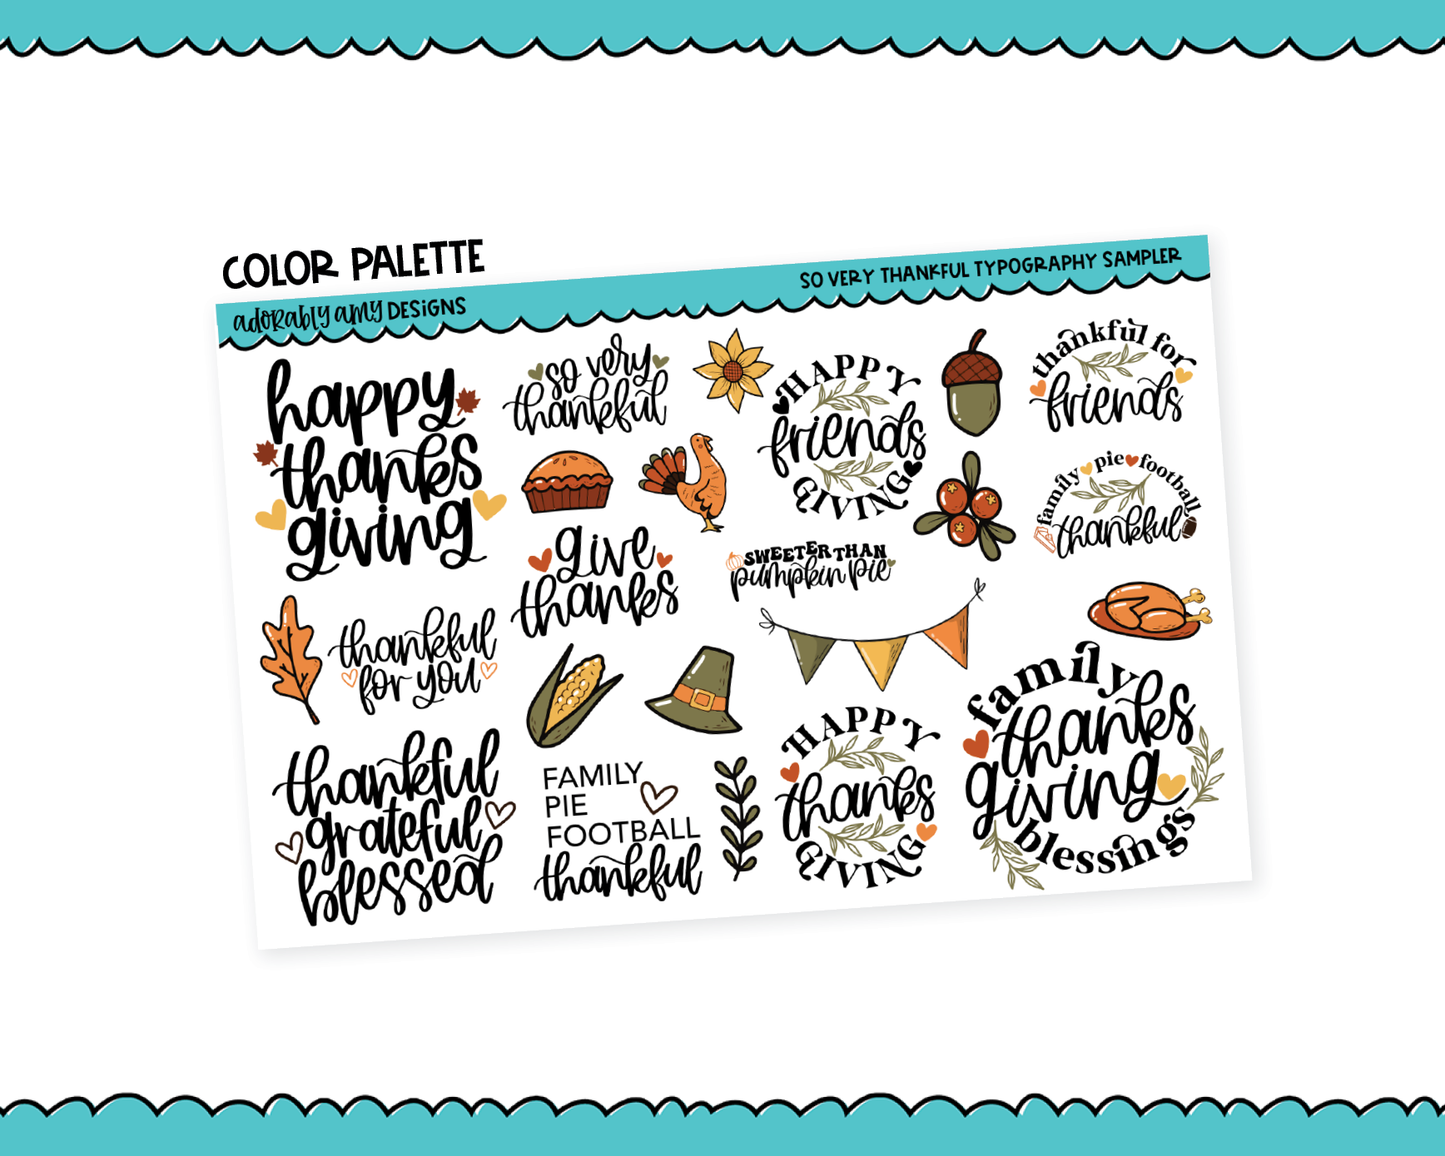 COLOR PALETTE
adorably amy DESIGNS
SO VERY THANKFUL TYPOGRAPHY SAMPLER
happy
thanks
giving
so very
thankful
HAPPY
friends
GIVING
thankful for
friends
family pie football
thankful
give
thanks
SWEETER THAN
pumpkin pie
thankful
for you
thankful
grateful
blessed
FAMILY
PIE
FOOTBALL
thankful
HAPPY
thanks
GIVING
family
thanks
giving
blessings